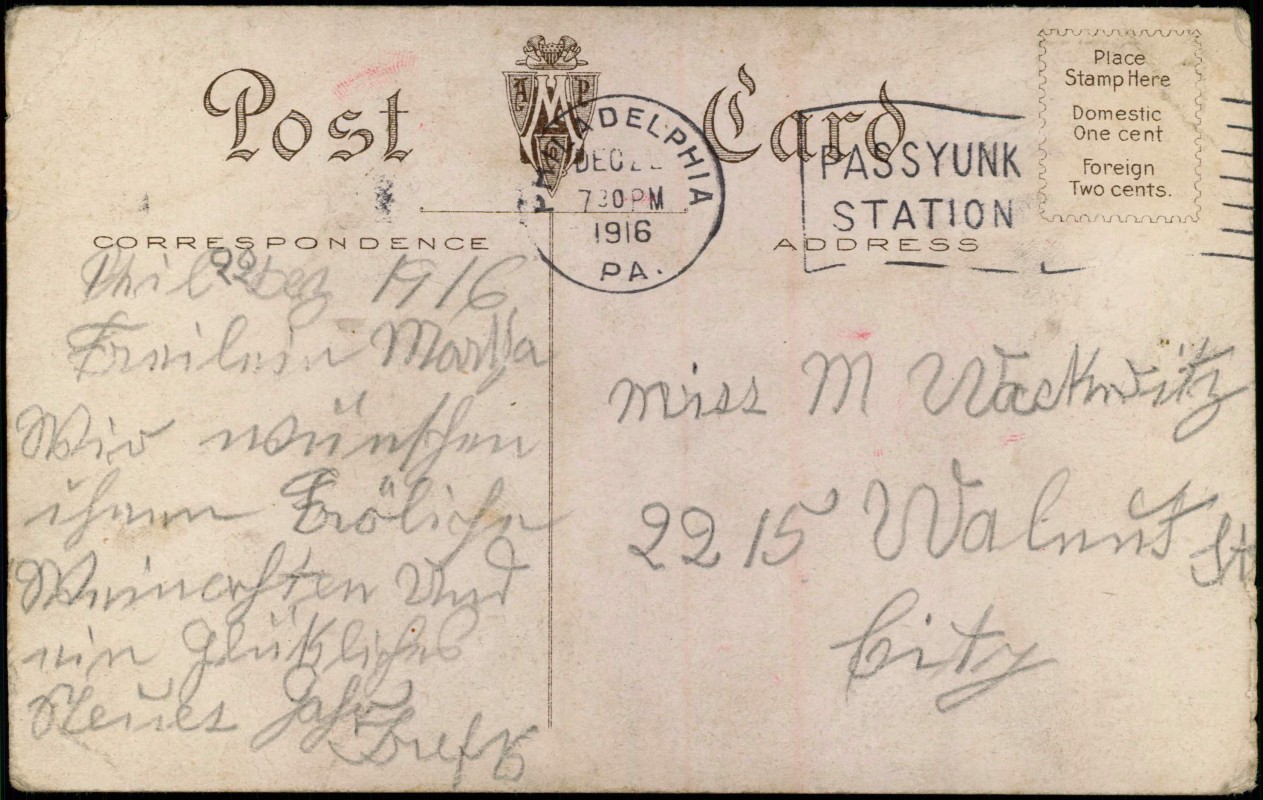 Post Card
A M P
Place
Stamp Here
Domestic
One cent
Foreign
Two cents.
PHILADELPHIA
DEC 22
730 PM
1916
PA.
PASSYUNK
STATION
CORRESPONDENCE
ADDRESS
Phil 22 Dez 1916
Freilein Martha
Wir wünschen
ihnen Fröliche
Weinachten Und
ein Glükliches
Neues Jahr
Miss M Wackwitz
2215 Walnut St
City